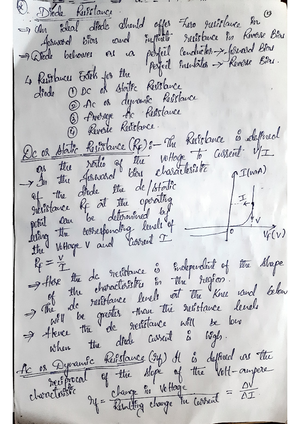 Diode Resistance
→ An ideal diode should offer zero resistance in
forward bias and infinite resistance in Reverse Bias
→ Diode behaves as a perfect conductor → forward Bias
Perfect insulator → Reverse Bias.
4 Resistances Exist for the
diode ① DC or Static Resistance
② Ac or dynamic Resistance
③ Average Ac Resistance
④ Reverse Resistance.
Dc or Static Resistance (Rf):- The Resistance is defined
as the ratio of the voltage to current V/I
→ In the forward bias characteristic
of the diode the dc/static
resistance Rf at the operating
point can be determined by
using the corresponding levels of
the voltage V and current I
I(mA)
I
0
V
Vf(V)
Rf = V/I
→ Here the dc resistance is independent of the shape
of the characteristics in the region.
→ The dc resistance levels at the knee and below
will be greater than the resistance levels
→ Hence the dc resistance will be low
when the diode current is high.
Ac or Dynamic Resistance (rf) It is defined as the
reciprocal of the slope of the volt-ampere
characteristic
rf = change in voltage / Resulting change in current = ΔV / ΔI